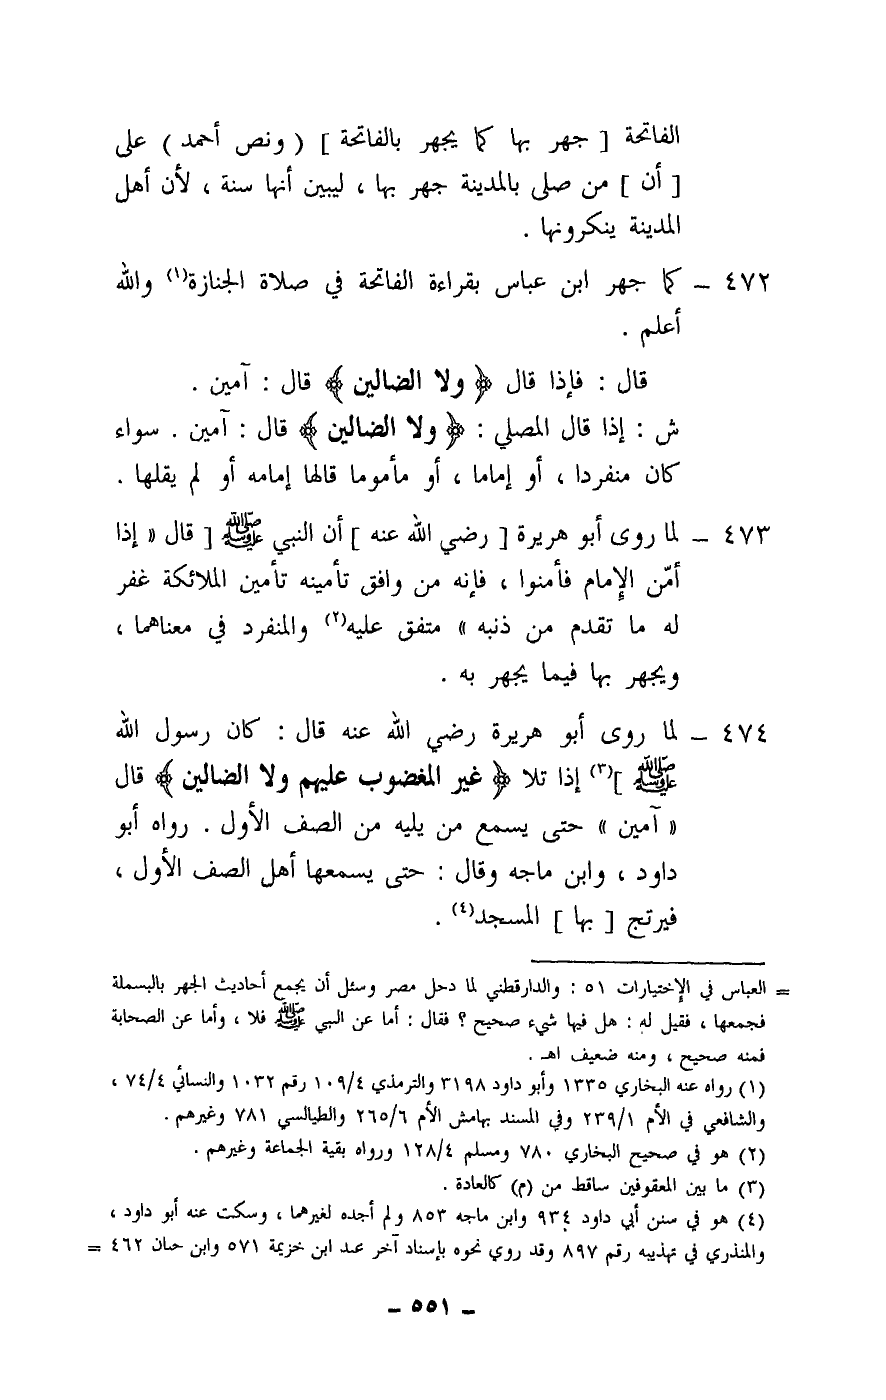 الفاتحة [ جهر بها كما يجهر بالفاتحة ] ( ونص أحمد ) على
[ أن ] من صلى بالمدينة جهر بها ، ليبين أنها سنة ، لأن أهل
المدينة ينكرونها .
٤٧٢ – كما جهر ابن عباس بقراءة الفاتحة في صلاة الجنازة(١) والله
أعلم .
قال : فإذا قال ﴿ ولا الضالين ﴾ قال : آمين .
ش : إذا قال المصلي : ﴿ ولا الضالين ﴾ قال : آمين . سواء
كان منفردا ، أو إماما ، أو مأموما قالها إمامه أو لم يقلها .
٤٧٣ – لما روى أبو هريرة [ رضي الله عنه ] أن النبي ﷺ [ قال « إذا
أمّن الإمام فأمنوا ، فإنه من وافق تأمينه تأمين الملائكة غفر
له ما تقدم من ذنبه » متفق عليه(٢) والمنفرد في معناهما ،
ويجهر بها فيما يجهر به .
٤٧٤ – لما روى أبو هريرة رضي الله عنه قال : كان رسول الله
ﷺ ](٣) إذا تلا ﴿ غير المغضوب عليهم ولا الضالين ﴾ قال
« آمين » حتى يسمع من يليه من الصف الأول . رواه أبو
داود ، وابن ماجه وقال : حتى يسمعها أهل الصف الأول ،
فيرتج [ بها ] المسجد(٤) .
= العباس في الإختيارات ٥١ : والدارقطني لما دخل مصر وسئل أن يجمع أحاديث الجهر بالبسملة
فجمعها ، فقيل له : هل فيها شيء صحيح ؟ فقال : أما عن النبي ﷺ فلا ، وأما عن الصحابة
فمنه صحيح ، ومنه ضعيف اهـ .
(١) رواه عنه البخاري ١٣٣٥ وأبو داود ٣١٩٨ والترمذي ١٠٩/٤ رقم ١٠٣٢ والنسائي ٧٤/٤ ،
والشافعي في الأم ٢٣٩/١ وفي المسند بهامش الأم ٢٦٥/٦ والطيالسي ٧٨١ وغيرهم .
(٢) هو في صحيح البخاري ٧٨٠ ومسلم ١٢٨/٤ ورواه بقية الجماعة وغيرهم .
(٣) ما بين المعقوفين ساقط من (م) كالعادة .
(٤) هو في سنن أبي داود ٩٣٤ وابن ماجه ٨٥٣ ولم أجده لغيرهما ، وسكت عنه أبو داود ،
والمنذري في تهذيبه رقم ٨٩٧ وقد روي نحوه بإسناد آخر عند ابن خزيمة ٥٧١ وابن حبان ٤٦٢ =
– ٥٥١ –